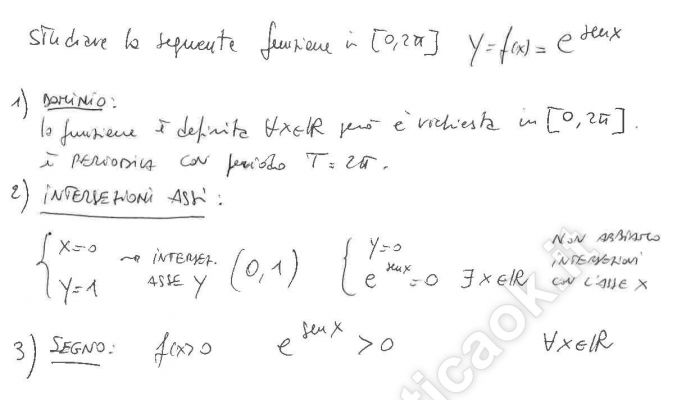 Studiare la seguente funzione in [0,2π] y=f(x)=e^senx
1) DOMINIO:
la funzione è definita ∀x∈R però è richiesta in [0,2π].
è PERIODICA con periodo T=2π.
2) INTERSEZIONI ASSI:
{ x=0 → INTERSEZ. (0,1) { y=0 NON ABBIAMO
y=1 ASSE y e^senx=0 ∄x∈R INTERSEZIONI
CON L'ASSE X
3) SEGNO: f(x)>0 e^senx >0 ∀x∈R
ticaok.it